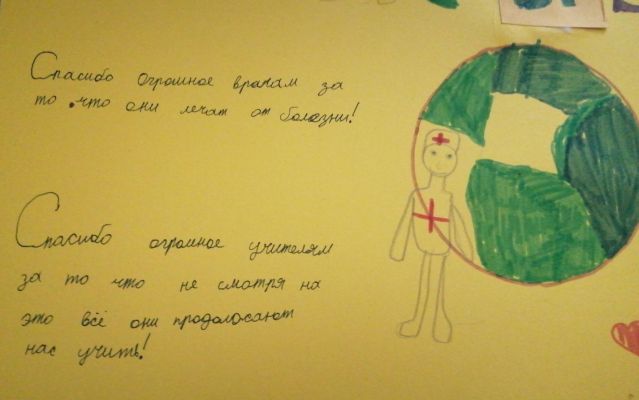 Спасибо огромное врачам за
то что они лечат от болезни!
Спасибо огромное учителям
за то что не смотря на
это всё они продолжают
нас учить!